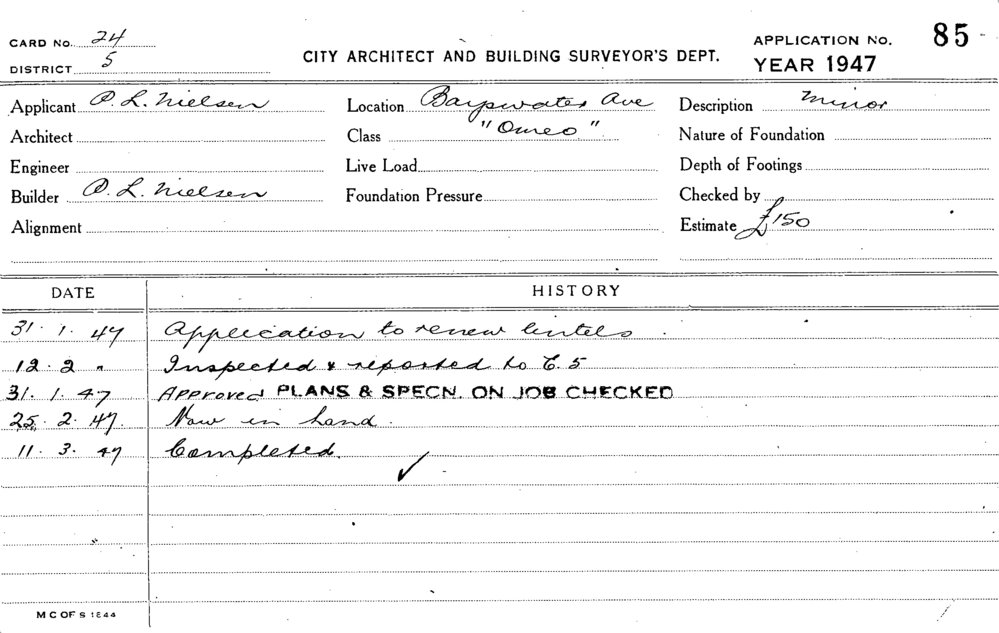 CARD No. 24
DISTRICT 5
CITY ARCHITECT AND BUILDING SURVEYOR'S DEPT.
APPLICATION No. 85
YEAR 1947
Applicant P. L. Nielsen
Location Bayswater Ave
Description Minor
Architect
Class "Omeo"
Nature of Foundation
Engineer
Live Load
Depth of Footings
Builder P. L. Nielsen
Foundation Pressure
Checked by
Alignment
Estimate £150
DATE HISTORY
31. 1. 47 Application to renew lintels.
12. 2 " Inspected & reported to E.5
31. 1. 47 Approved PLANS & SPECN. ON JOB CHECKED
25. 2. 47. Now in hand.
11. 3. 47 Completed.
M C OF S 1844